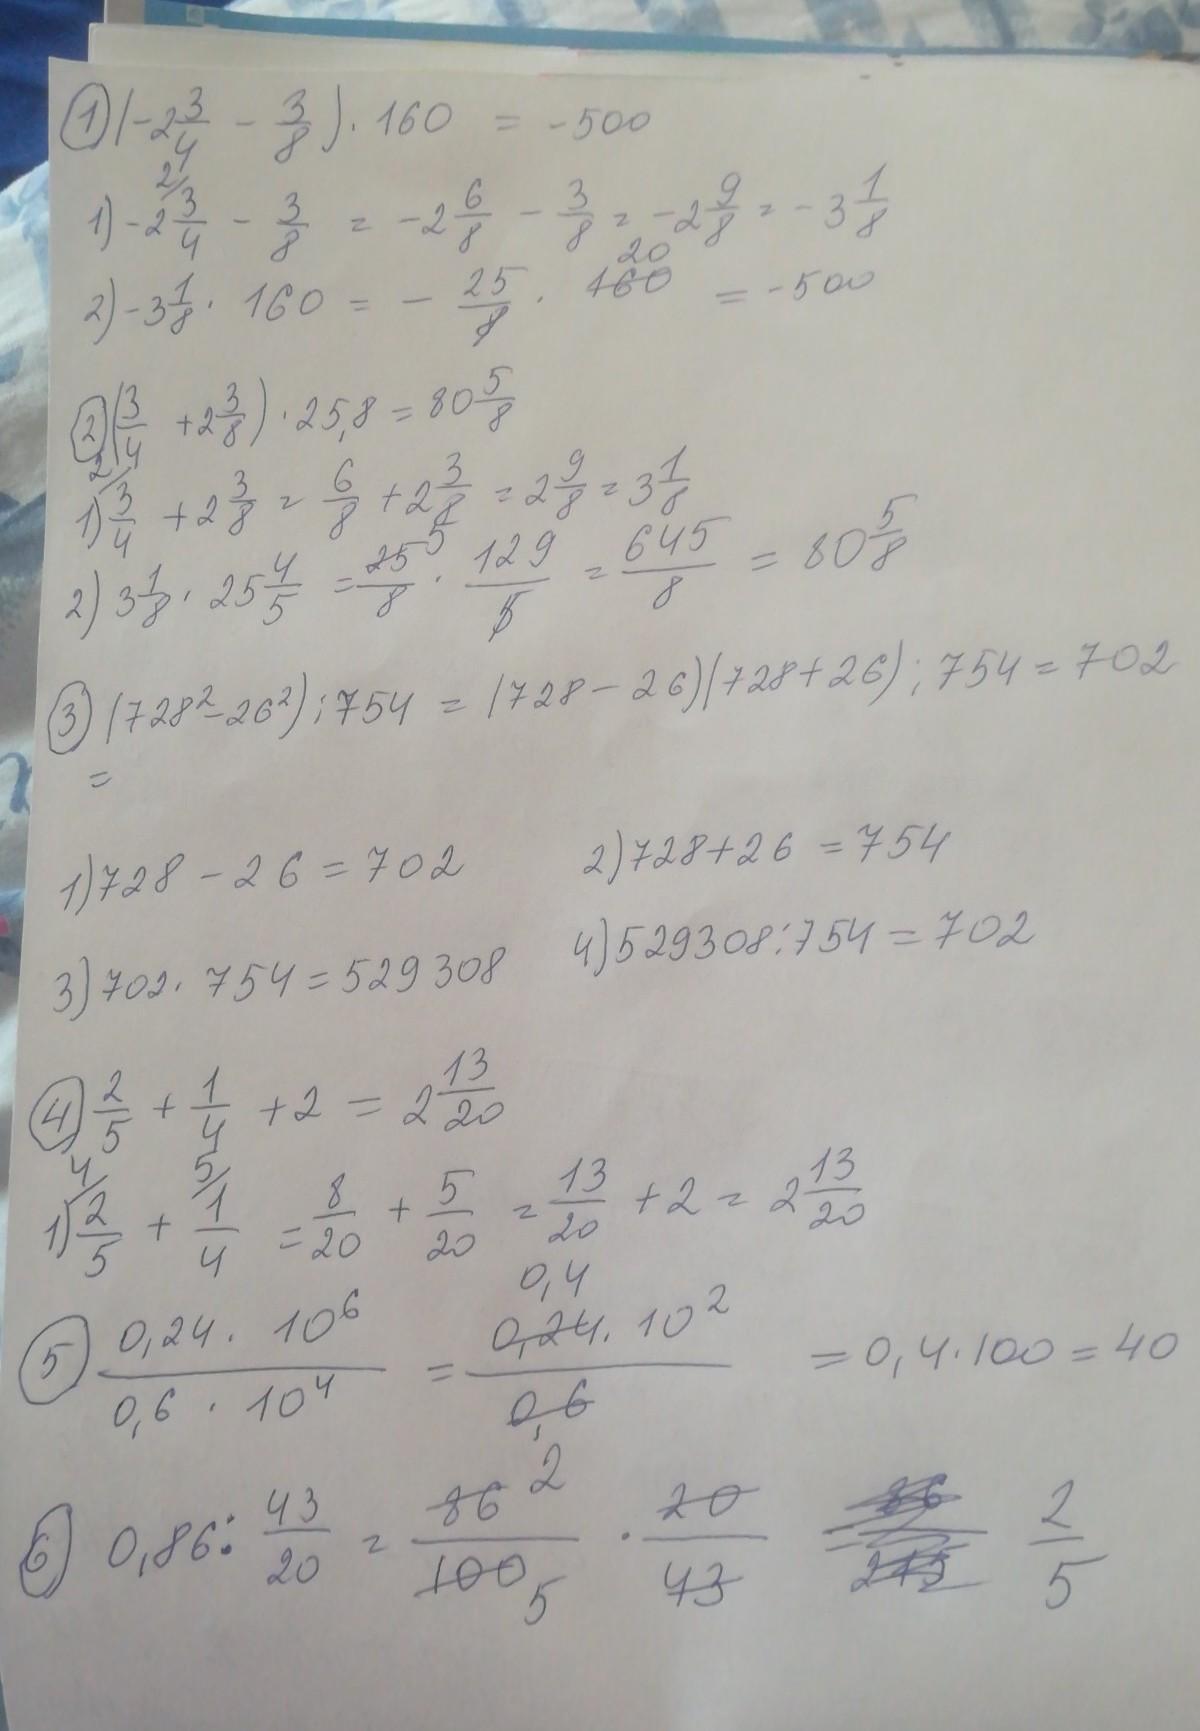 1) (-2 3/4 - 3/8) · 160 = -500
1) -2 3/4 - 3/8 = -2 6/8 - 3/8 = -2 9/8 = -3 1/8
2) -3 1/8 · 160 = - 25/8 · 160 20 = -500
2) (3/4 + 2 3/8) · 25,8 = 80 5/8
1) 3/4 + 2 3/8 = 6/8 + 2 3/8 = 2 9/8 = 3 1/8
2) 3 1/8 · 25 4/5 = 25 5/8 · 129/5 = 645/8 = 80 5/8
3) (728² - 26²) : 754 = (728 - 26)(728 + 26) : 754 = 702
=
1) 728 - 26 = 702 2) 728 + 26 = 754
3) 702 · 754 = 529308 4) 529308 : 754 = 702
4) 2/5 + 1/4 + 2 = 2 13/20
1) 2/5 + 1/4 = 8/20 + 5/20 = 13/20 + 2 = 2 13/20
5) 0,24 · 10⁶ / 0,6 · 10⁴ = 0,4 0,24 · 10² / 0,6 = 0,4 · 100 = 40
6) 0,86 : 43/20 = 86 2/100 5 · 20/43 = 2/5